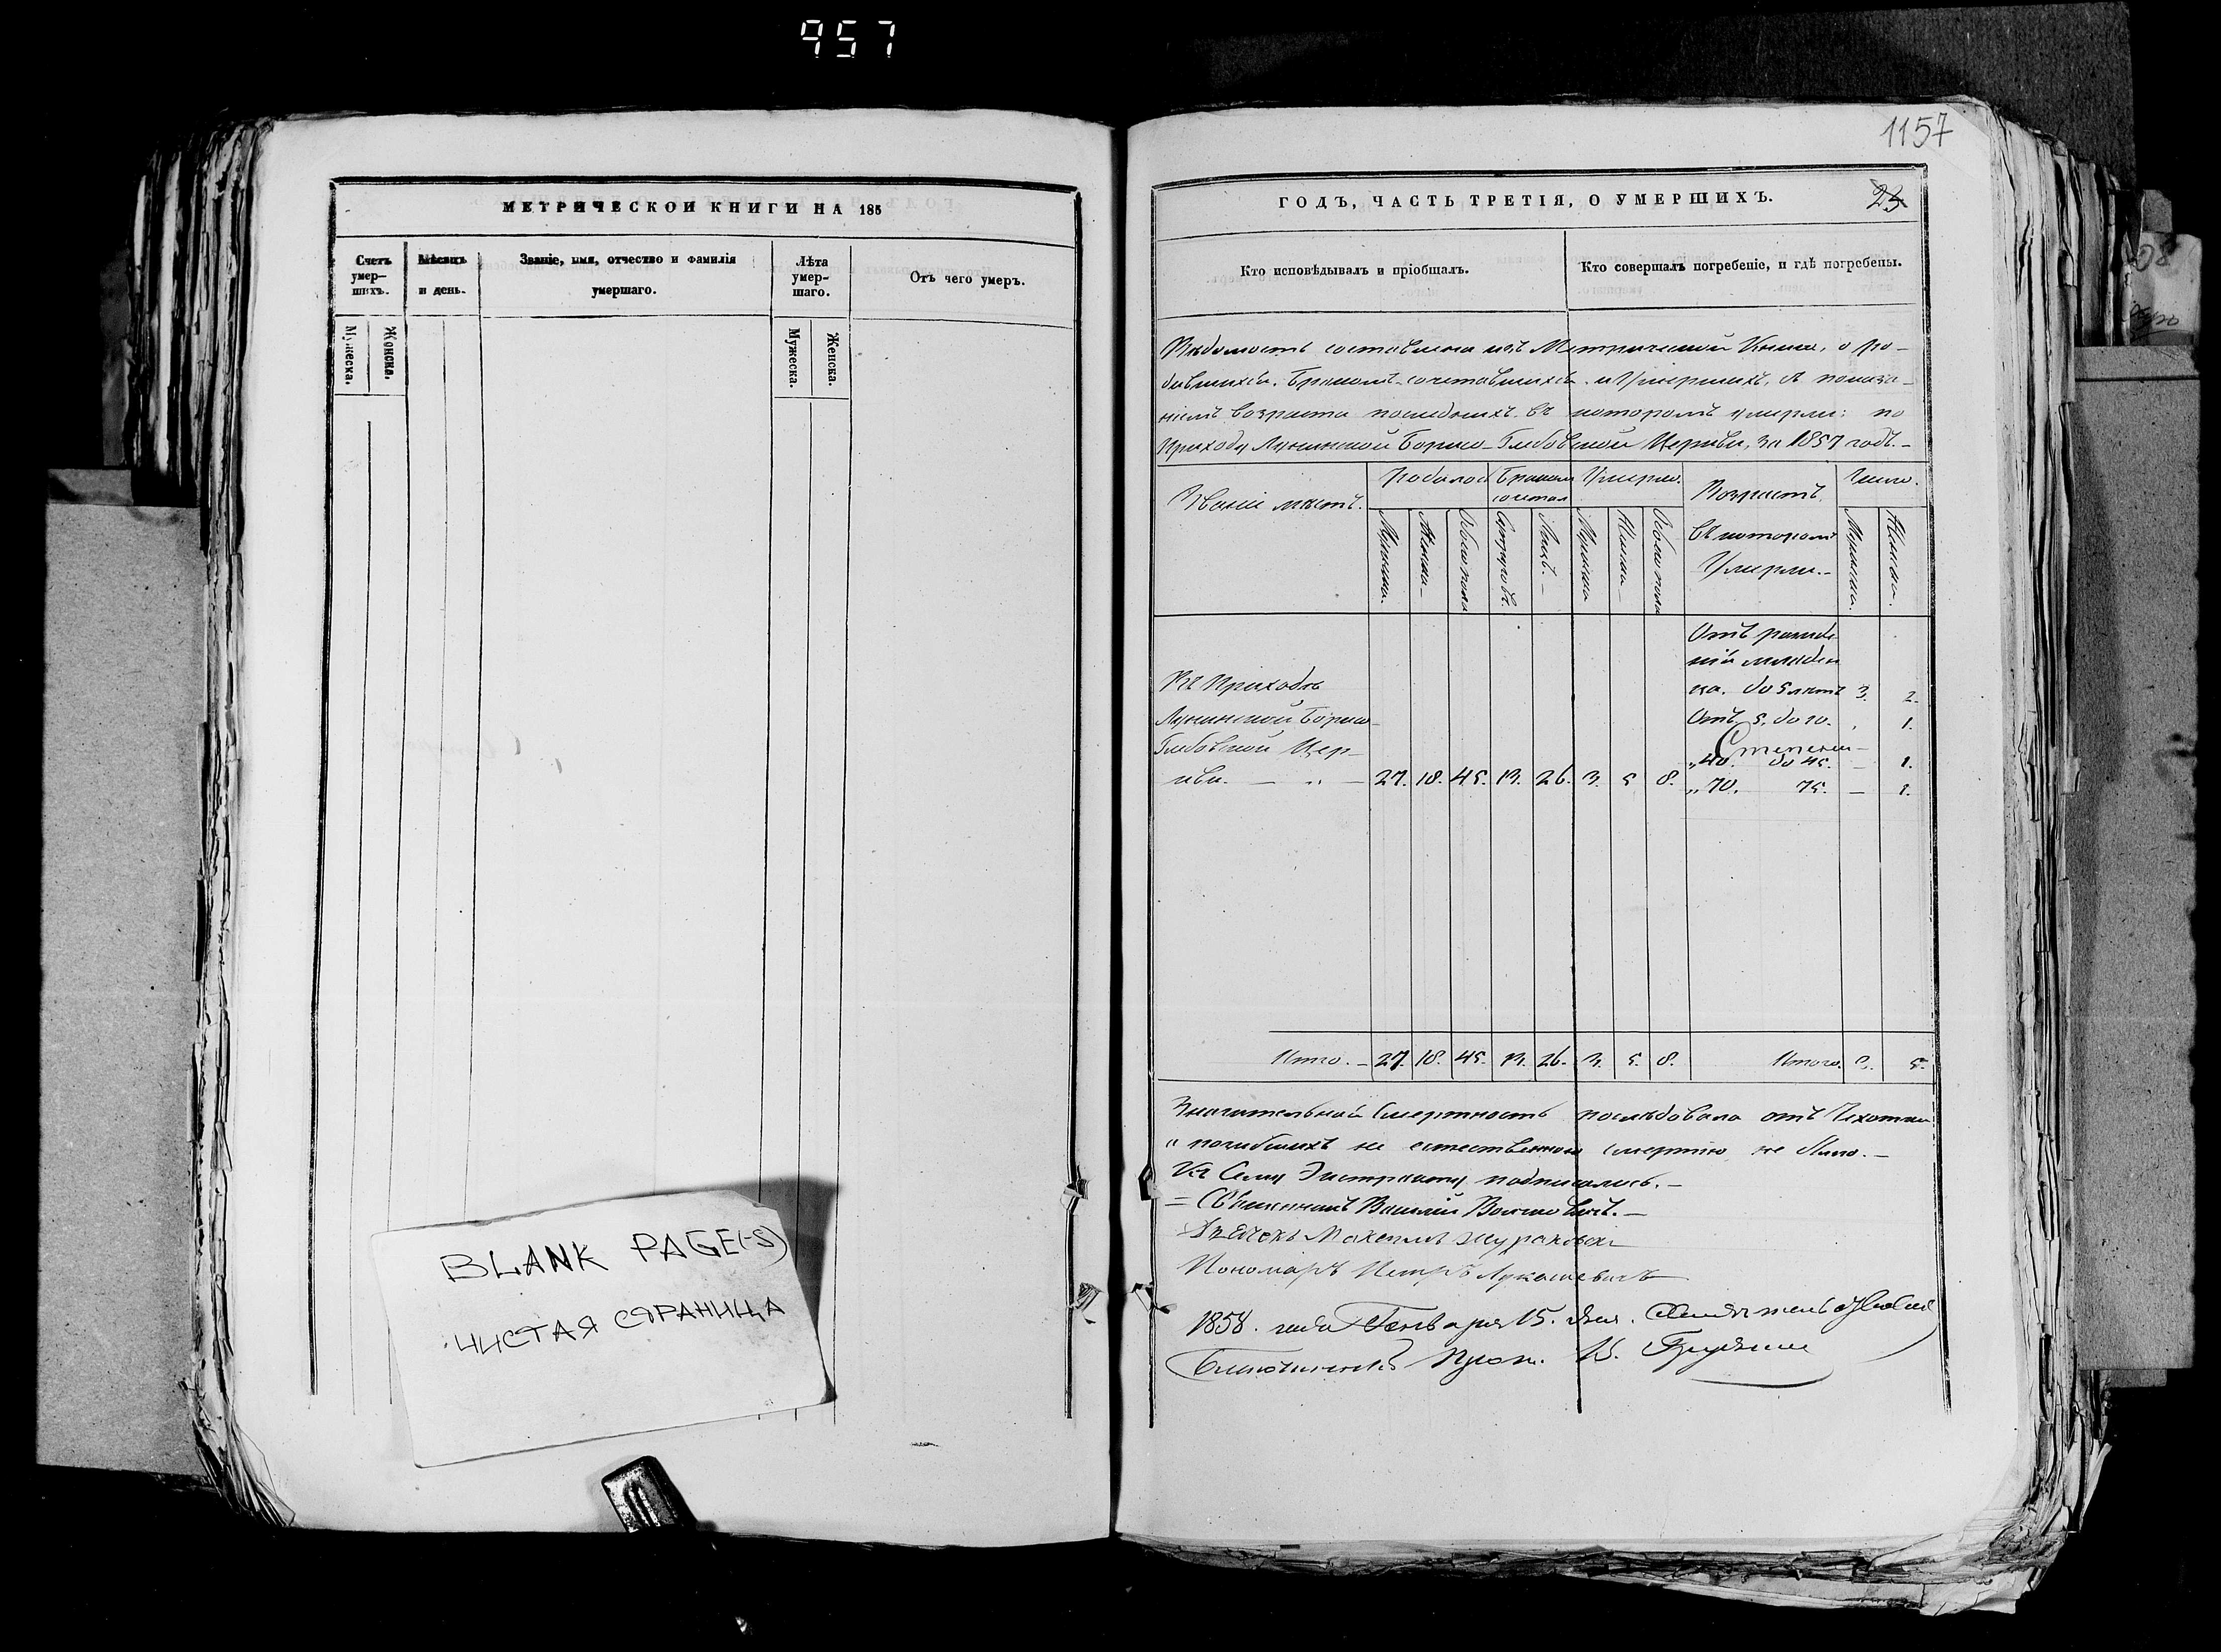 957
МЕТРИЧЕСКОЙ КНИГИ НА 185
Счетъ умер-шихъ.
Мѣсяцъ и день.
Званіе, имя, отчество и фамилія умершаго.
Лѣта умер-шаго.
Отъ чего умеръ.
Мужеска.
Женска.
Мужеска.
Женска.
BLANK PAGE(-S)
ЧИСТАЯ СТРАНИЦА
1157
ГОДЪ, ЧАСТЬ ТРЕТІЯ, О УМЕРШИХЪ.
25
Кто исповѣдывалъ и пріобщалъ.
Кто совершалъ погребеніе, и гдѣ погребены.
Вѣдомость составлена изъ Метрической Книги, о ро-
дившихся, Бракомъ сочетавшихся и Умершихъ, съ показа-
ніемъ возраста послѣднихъ въ которомъ умерли: по
Приходу Лунинской Борисо-Глебовской Церкви, за 1857 годъ.-
Званіе мѣстъ.
Родилось
Бракомъ сочетал
Умерло.
Возрастъ
въ которомъ
Умерли.-
Число.
Мужеска.
Женска
Обоего пола
Супруговъ.
Лицъ.-
Мужеска
Женска
Обоего пола
Мужеска.
Женска.
Отъ рожде
нія младен
ца. до 5 лѣтъ 3. 2.
Отъ 5. до 10. 1.
„ 40. до 45. - 1.
„ 70. 75. - 1.
Въ Приходѣ
Лунинской Борисо-
Глебовской Цер-
кви. - „ - 27. 18. 45. 13. 26. 3. 5 8.
Итого. - 27. 18. 45. 13. 26. 3. 5. 8. Итого. 3. 5.
Значительная Смертность послѣдовала отъ Чахотки
„ погибшихъ не естественною смертію не было.-
Къ Сему Экстракту подписались.-
= Священникъ Василій
Дьячекъ
Пономаръ Петръ Лукашевичъ
1858. года Генваря 15. дня.
Благочинный Прот.